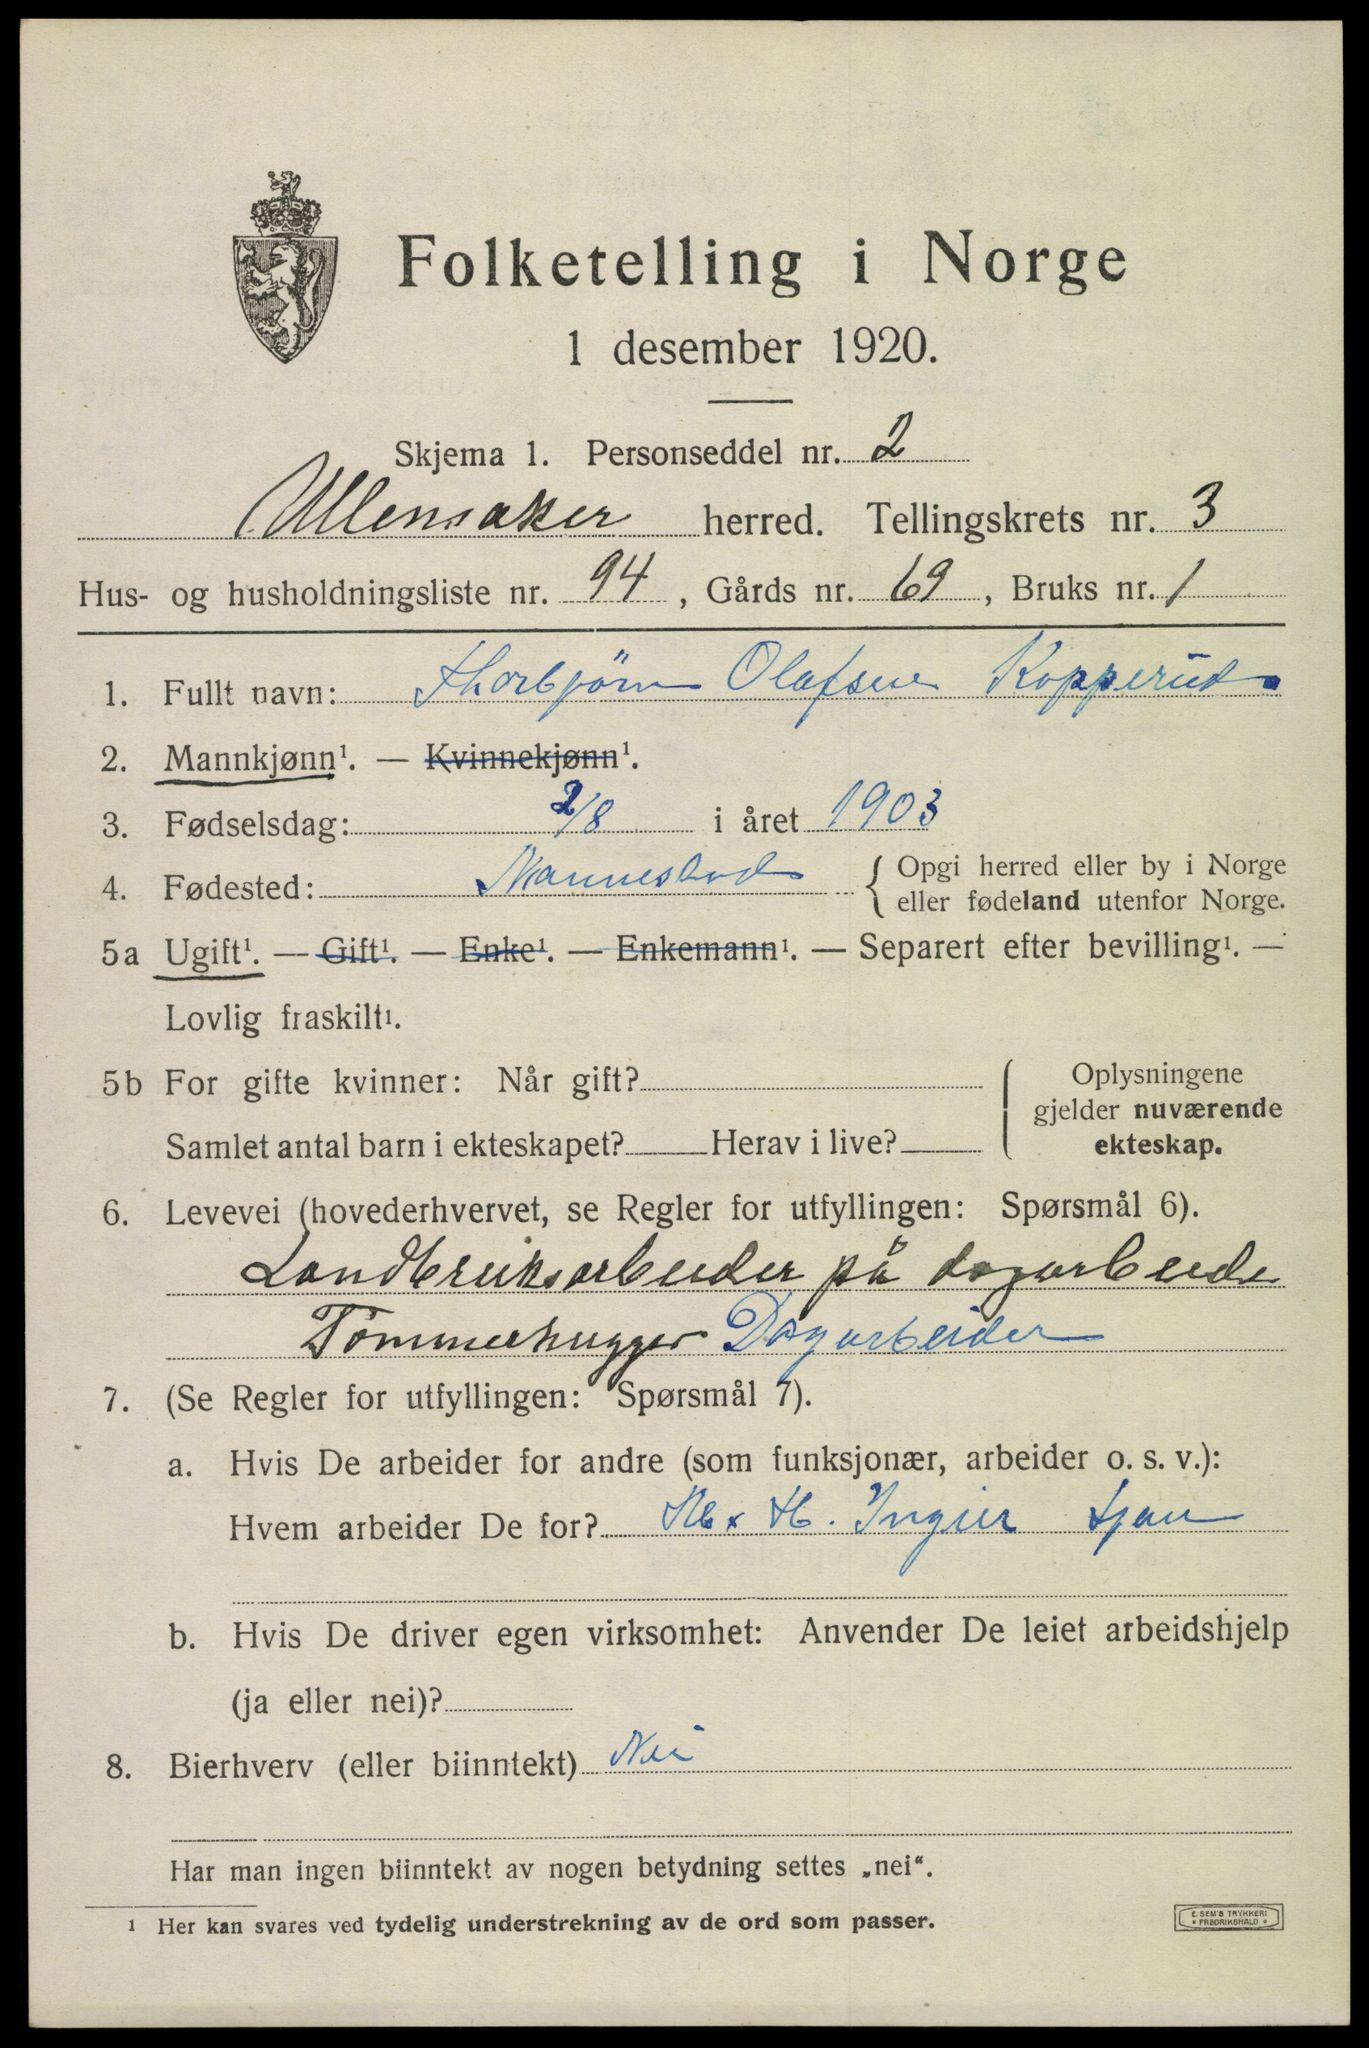 Folketelling i Norge
1 desember 1920.
Skjema 1. Personseddel nr. 2
Ullensaker herred. Tellingskrets nr. 3
Hus- og husholdningsliste nr. 94, Gårds nr. 69, Bruks nr. 1
1. Fullt navn: Thorbjörn Olafsen Kopperud
2. Mannkjønn¹. — Kvinnekjønn¹.
3. Fødselsdag: 2/8 i året 1903
4. Fødested: Nannestad { Opgi herred eller by i Norge
eller fødeland utenfor Norge.
5a Ugift¹. — Gift¹. — Enke¹. — Enkemann¹. — Separert efter bevilling¹. —
Lovlig fraskilt¹.
5b For gifte kvinner: Når gift?
Samlet antal barn i ekteskapet? Herav i live?
Oplysningene
gjelder nuværende
ekteskap.
6. Levevei (hovederhvervet, se Regler for utfyllingen: Spørsmål 6).
Landbruksarbeider på dagarbeide
Tömmerhugger Dagarbeider
7. (Se Regler for utfyllingen: Spørsmål 7).
a. Hvis De arbeider for andre (som funksjonær, arbeider o. s. v.):
Hvem arbeider De for? H. Ingier Ljan
b. Hvis De driver egen virksomhet: Anvender De leiet arbeidshjelp
(ja eller nei)?
8. Bierhverv (eller biinntekt) Nei
Har man ingen biinntekt av nogen betydning settes „nei“.
¹ Her kan svares ved tydelig understrekning av de ord som passer.
E. SEM'S TRYKKERI
• FREDRIKSHALD •